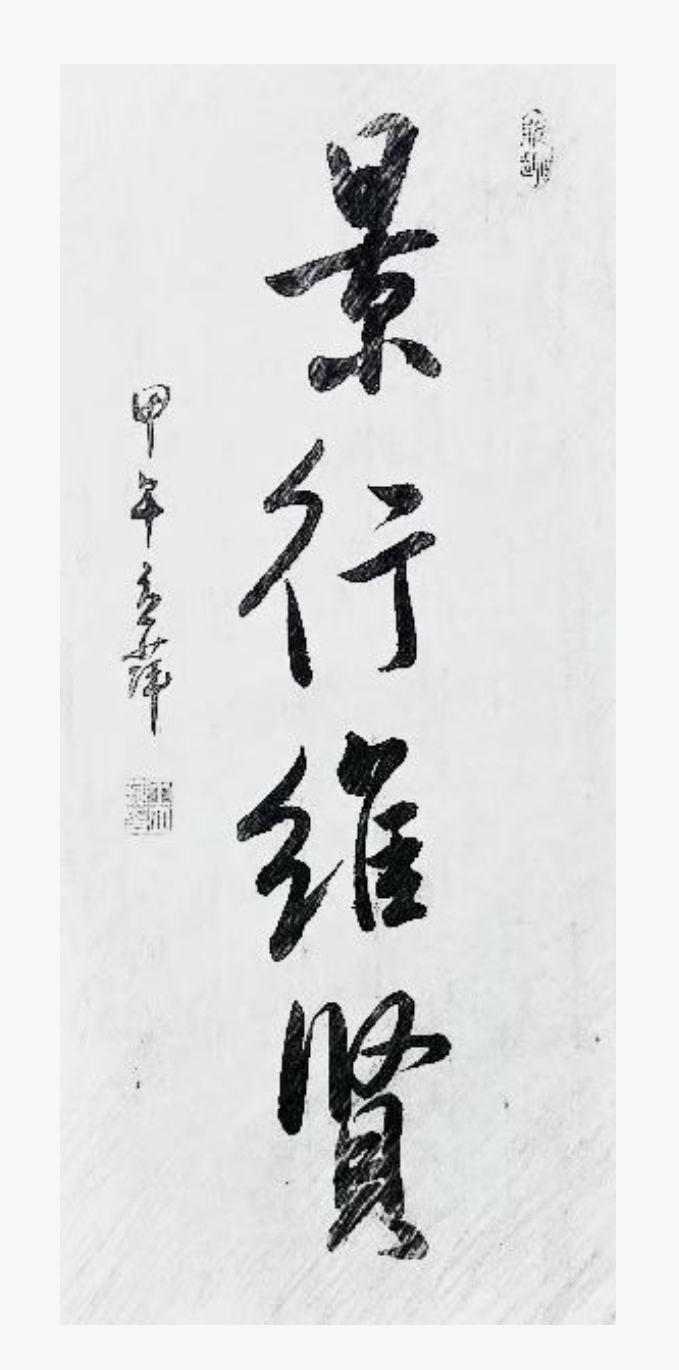 景行維賢
甲午